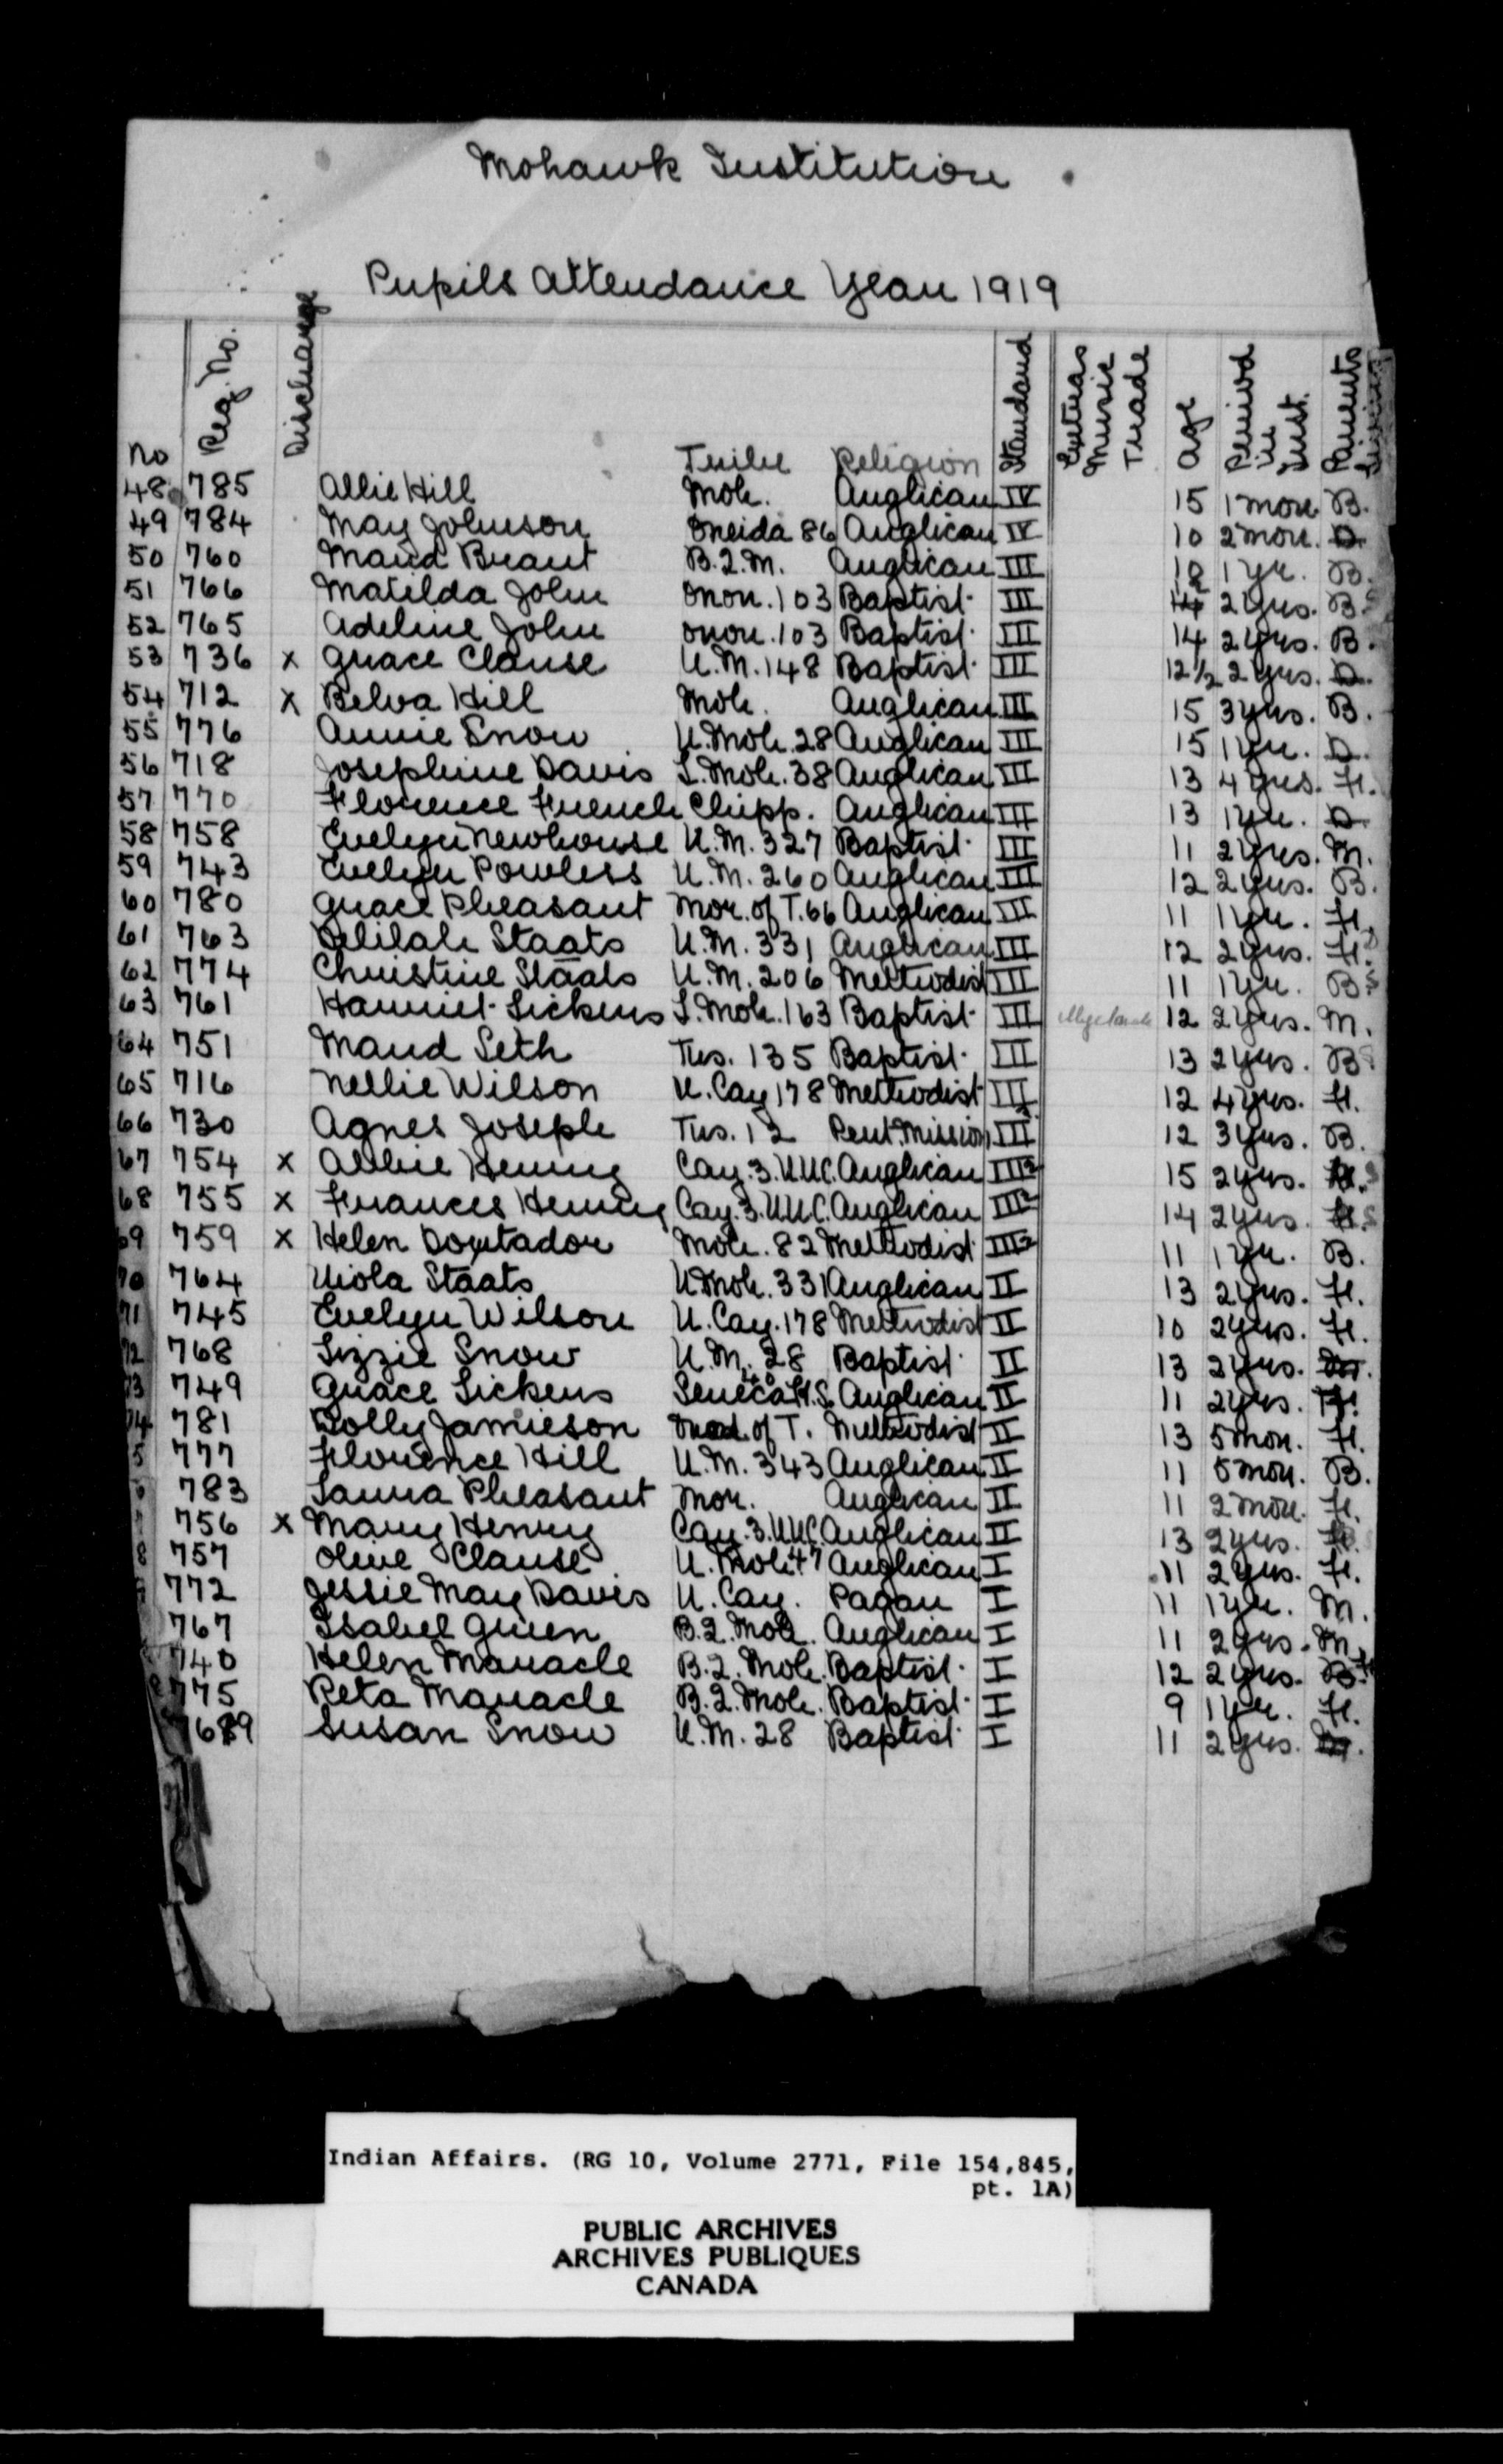 Mohawk Institution
Pupils Attendance Year 1919
No Reg. No. Discharge Tribe Religion Standard Extras Music Trade Age Period in Inst. Parents Living
48 785 Allie Hill Moh. Anglican IV 15 1 mon. B.
49 784 May Johnson Oneida 86 Anglican IV 10 2 mon. D.
50 760 Maud Brant B.Q.M. Anglican III 10 1 yr. B.
51 766 Matilda John Onon. 103 Baptist III 12 2 yrs. B.
52 765 Adeline John Onon. 103 Baptist III 14 2 yrs. B.
53 736 x Grace Clause U.M. 148 Baptist III 12 1/2 2 yrs. D.
54 712 x Belva Hill Moh. Anglican III 15 3 yrs. B.
55 776 Annie Snow U. Moh. 28 Anglican III 15 1 yr. D.
56 718 Josephine Davis L. Moh. 38 Anglican III 13 4 yrs. H.
57 770 Florence French Chipp. Anglican III 13 1 yr. D.
58 758 Evelyn Newhouse U.M. 327 Baptist III 11 2 yrs. M.
59 743 Evelyn Powless U.M. 260 Anglican III 12 2 yrs. B.
60 780 Grace Pheasant Mor. of T. 66 Anglican III 11 1 yr. H.
61 763 Delilah Staats U.M. 331 Anglican III 12 2 yrs. H.
62 774 Christine Staats U.M. 206 Methodist III 11 1 yr. B
63 761 Harriet Sickers L. Moh. 163 Baptist III 12 2 yrs. M.
64 751 Maud Seth Tus. 135 Baptist III 13 2 yrs. B
65 716 Nellie Wilson U. Cay 178 Methodist III 12 4 yrs. H.
66 730 Agnes Joseph Tus. 12 Pent. Mission III 12 3 yrs. B.
67 754 x Abbie Henry Cay. 3. U.U.C. Anglican III 15 2 yrs.
68 755 x Frances Henry Cay. 3. U.U.C. Anglican III 14 2 yrs.
69 759 x Helen Doxtador Moh. 82 Methodist III 11 1 yr. B.
70 764 Viola Staats U Moh. 331 Anglican II 13 2 yrs. H.
71 745 Evelyn Wilson U. Cay. 178 Methodist II 10 2 yrs. H.
72 768 Lizzie Snow U.M. 28 Baptist II 13 2 yrs.
73 749 Grace Sickers Seneca H.S. Anglican II 11 2 yrs. H.
74 781 Dolly Jamieson of T. Methodist II 13 5 mon. H.
5 777 Florence Hill U.M. 343 Anglican II 11 5 mon. B.
783 Launa Pheasant Mor. Anglican II 11 2 mon. H.
756 x Mary Henry Cay. 3. U.U.C. Anglican II 13 2 yrs.
8 757 Olive Clause U. Moh 47 Anglican I 11 2 yrs. H.
772 Jessie May Davis U. Cay. Pagan I 11 1 yr. M.
767 Isabel Green B.Q. Moh. Anglican I 11 2 yrs. M.
740 Helen Maracle B.Q. Moh. Baptist I 12 2 yrs.
775 Reta Maracle B.Q. Moh. Baptist I 9 1 yr. H.
769 Susan Snow U.M. 28 Baptist I 11 2 yrs.
Indian Affairs. (RG 10, Volume 2771, File 154,845,
pt. 1A)
PUBLIC ARCHIVES
ARCHIVES PUBLIQUES
CANADA